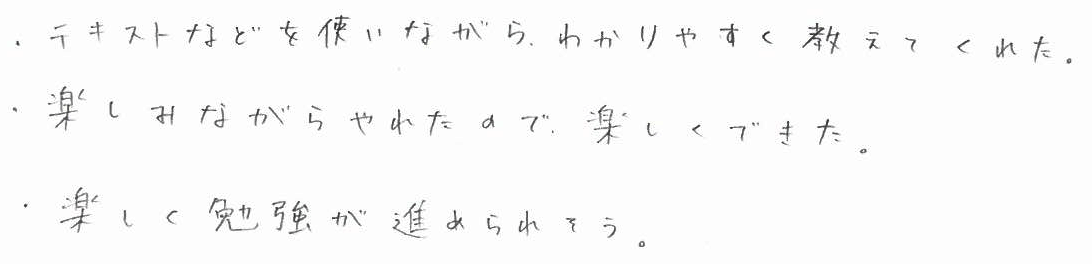 ・テキストなどを使いながら、わかりやすく教えてくれた。
・楽しみながらやれたので、楽しくできた。
・楽しく勉強が進められそう。